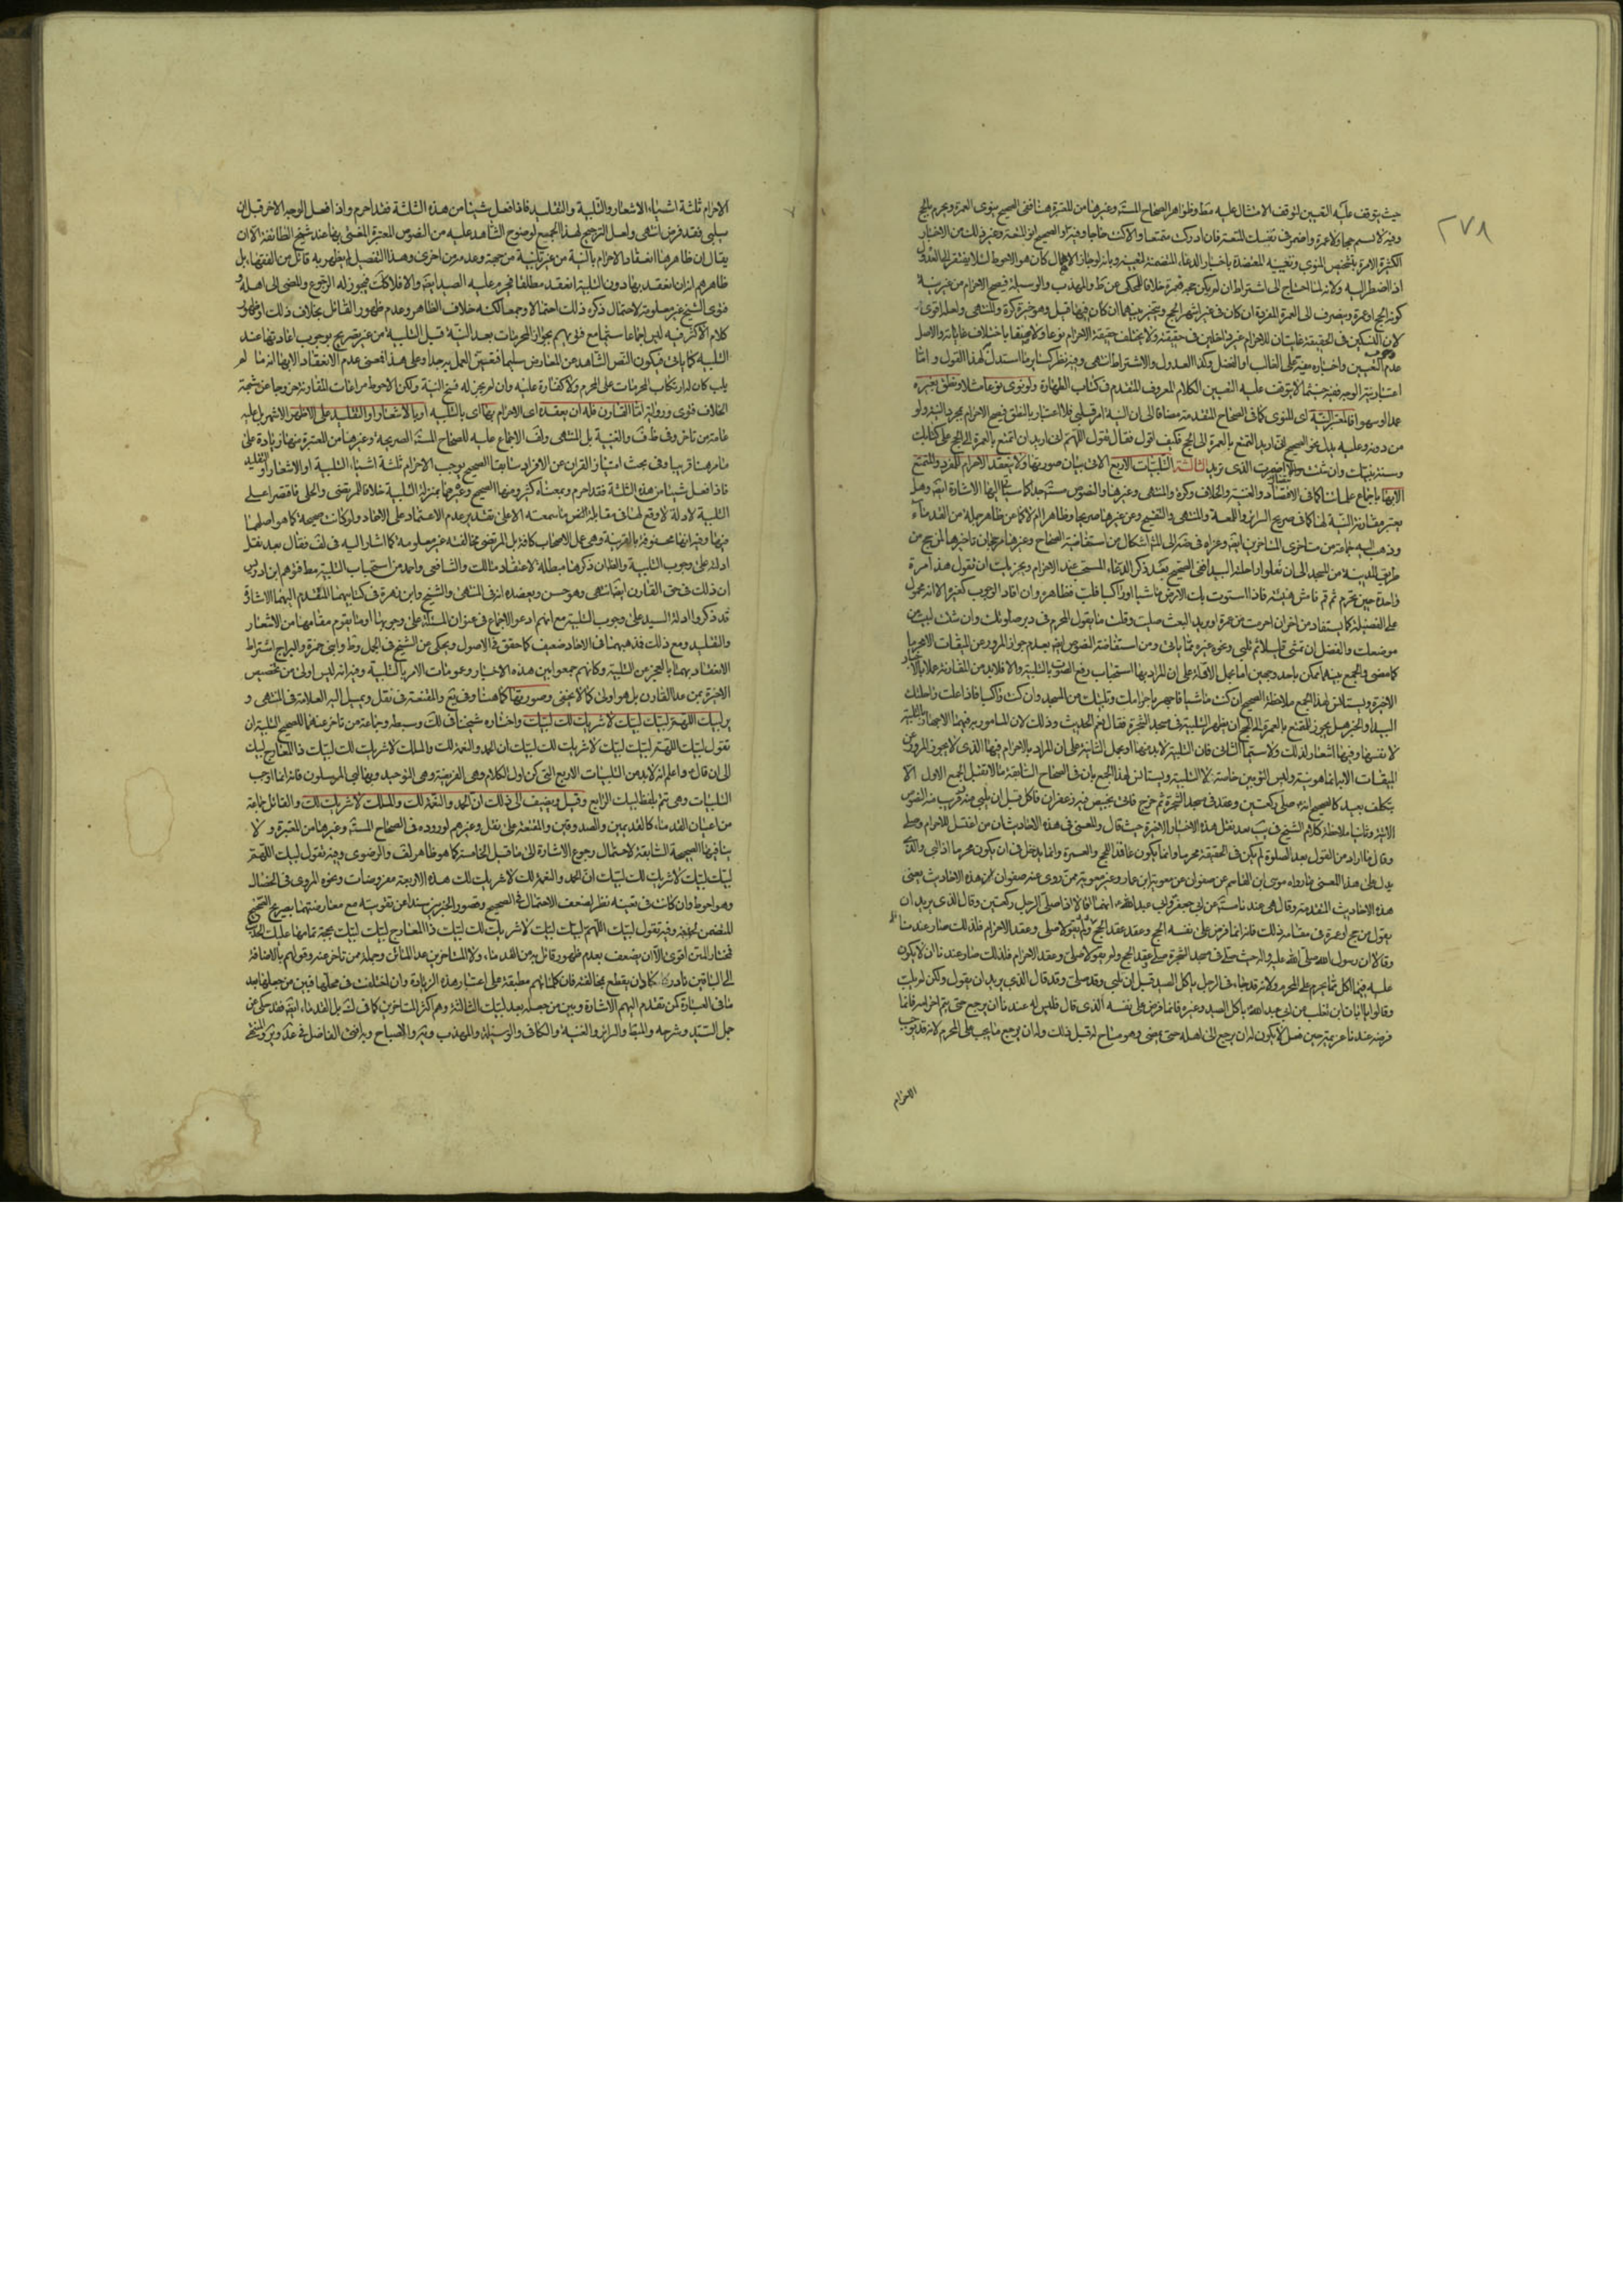 ٢٧٨
حيث يتوقف عليه التعيين لتوقف الامتثال عليه مط وظواهر الصحاح المستفيضة وغيرها من المعتبرة هنا ففي الصحيح ينوى العمرة ويحرم بالحج
وفيه لا تسم حجا ولا عمرة واضمر في نفسك المتعة فان ادركت متمتعا والا كنت حاجا وفي الصحيح انو المتعة وغير ذلك من الاخبار
الكثيرة الامرة بتشخيص المنوى وتعيينه المعتضدة باخبار الدعاء المتضمنة لتعيينه وبانه لو جاز الاهمال كان هو الاحوط لئلا يفتقر الى العدول
اذا اضطر اليه ولانه لما احتاج الى اشتراط ان لم يكن حجة فعمرة خلافا للمحكى عن ط والمهذب والوسيلة فيصح الاحرام من غير نية
كونه لحج او عمرة وينصرف الى العمرة المفردة ان كان في غير اشهر الحج ويتخير بينهما ان كان فيها قبل وهو خيرة كره والمنتهى ولعله اقوى
لان النسكين في الحقيقة غايتان للاحرام غير داخلين في حقيقته ولا يختلف حقيقة الاحرام نوعا ولا صنفا باختلاف غاياته والاصل
عدم وجوب التعيين واخباره مبنية على الغالب او الفضل وكذا العدول والاشتراط انتهى وفيه نظر كساير ما استدل لهذا القول و اما
اعتبار نية الوجه ففيه حيثما لا يتوقف عليه التعيين الكلام المعروف المتقدم في كتاب الطهارة ولو نوى نوعا مثلا ونطق بغيره
عمدا او سهوا فالمعتبر النية اى المنوى كما في الصحاح المتقدمة مضافا الى ان النية امر قلبي فلا اعتبار بالنطق فيصح الاحرام بمجرد النية ولو
من دونه وعليه يدل نحو الصحيح اني اريد التمتع بالعمرة الى الحج فكيف اقول فقال تقول اللهم اني اريد ان اتمتع بالعمرة الى الحج على كتابك
وسنة نبيك وان شئت اضمرت الذى تريد الثالثة التلبيات الاربع الاتى بيان صورتها ولا ينعقد الاحرام للمفرد والمتمتع
الا بها باجماع علمائنا كما في الانتصار والغنية والخلاف وكره والمنتهى وغيرها والنصوص مستفيضة جدا كما سيأتى اليها الاشارة ايضا وهل
يعتبر مقارنة النية لها كما في صريح السرائر واللمعة والمنتهى والتنقيح وعن غيرها صريحا وظاهرا ام لا كما عن ظاهر جملة من القدماء
وذهب اليه جماعة من متأخرى المتأخرين ايضا وعزاه في
طريق المدينة من المسجد الى ان تعلوا راحلته البيداء ففي الصحيح بعد ذكر الدعاء المستحب عند الاحرام ويجزيك ان تقول هذا مرة
واحدة حين تحرم ثم قم فامش هنيئة فاذا استوت بك الارض ماشيا او راكبا فلب فظاهره وان افاد الوجوب كغيره الا انه محمول
على الفضيلة كما يستفاد من اخر
موضعك والفضل ان تمشي قليلا ثم تلبي ونحوه غيره مما ياتي ومن استفاضة النصوص ايضا بعدم جواز المرور عن الميقات الا محرما
كما مضى والجمع بينهما ممكن باحد وجهين اما بحمل الادلة على ان المراد بها استحباب رفع الصوت بالتلبية والا فلا بد من المقارنة عملا بالاخبار
الاخيرة ويستانس لهذا الجمع ملاحظة الصحيح ان كنت ماشيا فاجهر باهلالك وتلبيتك من المسجد وان كنت راكبا فاذا علت راحلتك
البيداء والخبر هل يجوز للمتمتع بالعمرة الى الحج ان يظهر التلبية في مسجد الشجرة فقال نعم الحديث وذلك لان المامور به فيهما الاجهار بالتلبية
لا نفسها وفيهما اشعار لذلك ولا سيما الثاني فان التلبية لا بد منها او بحمل الثانية على ان المراد بالاحرام فيها الذى لا يجوز المرور عن
الميقات الا به انما هو نية وليس الثوبين خاصة لا التلبية ويستانس لهذا الجمع بان في الصحاح السابقة ما لا تقبل الجمع الاول الا
بتكلف بعيد كالصحيح انه صلى ركعتين وعقد في مسجد الشجرة ثم خرج فاتى بخبيص فيه زعفران فاكل قبل ان يلبي منه وقريب منه النصوص
الاتية وثانيا ملاحظة كلام الشيخ في يب بعد نقل هذه الاخبار الاخيرة حيث قال والمعنى في هذه الاحاديث ان من اغتسل للاحرام وصلى
وقال ما اراد من القول بعد الصلوة لم يكن في الحقيقة محرما وانما يكون عاقدا للحج والعمرة وانما يدخل في ان يكون محرما اذا لبى والذى
يدل على هذا المعنى ما رواه موسى ابن القاسم عن صفوان عن معوية ابن عمار وغير معوية ممن روى عنه صفوان هذه الاحاديث يعنى
هذه الاحاديث المتقدمة وقال هي عندنا مستفيضة عن ابي جعفر وابي عبد الله انهما قالا اذا صلى الرجل ركعتين وقال الذى يريد ان
يقول من حج او عمرة في مقامه ذلك فانه انما فرض على نفسه الحج وعقد عقد الحج
وقالا ان رسول الله صلى الله عليه واله حيث صلى في مسجد الشجرة صلى وعقد الحج ولم يقولا صلى وعقد الاحرام فلذلك صار عندنا ان لا يكون
عليه فيما اكل مما يحرم على المحرم ولانه قد جاء في الرجل ياكل الصيد قبل ان يلبي وقد صلى وقد قال الذي يريد ان يقول ولكن لم يلب
وقالوا ابان ابن تغلب عن ابي عبد الله ياكل الصيد وغيره فانما فرض على نفسه الذى قال فليس له عندنا ان يرجع حتى يتم احرامه فانما
فرضه عندنا عزيمة حين فعل لا يكون له ان يرجع الى اهله حتى يمضي وهو مباح له قبل ذلك وله ان يرجع متى يحب على المحرم لانه قد يوجب
الاحرام
الاحرام ثلثة اشياء الاشعار والتلبية والتقليد فاذا فعل شيئا من هذه الثلثة فقد احرم واذا فعل الوجه الاخر قبل ان
يلبي فقد فرض انتهى ولعل الترجيح لهذا الجمع لوضوح الشاهد عليه من النصوص المعتبرة المفتى بها عند شيخ الطائفة الا ان
يقال ان ظاهرها انعقاد الاحرام بالنية من غير تلبية من جهة وعدمه من اخرى وهذا التفصيل لم يظهر به قائل من الفقهاء بل
ظاهرهم انه ان انعقد بها دون التلبية انعقد مطلقا فيحرم عليه الصيد ايضا والا فلا كك فيجوز له الرجوع والمضى الى اهله و
فتوى الشيخ غير معلومة لاحتمال ذكره ذلك احتمالا وجمعا لكنه خلاف الظاهر وعدم ظهور القائل بخلاف ذلك
كلام الاكثر فيه ليس اجماعا سيما مع فتويهم بجواز المحرمات بعد النية قبل التلبية من غير تصريح بوجوب اعادتها عند
التلبية كما ياتى فيكون النص الشاهد عن المعارض سليما فتعين العمل به جدا وعلى هذا فمعنى عدم الانعقاد الا بها انه ما لم
يلب كان له ارتكاب المحرمات على المحرم ولا كفارة عليه وان لم يجز له فسخ النية ولكن الاحوط مراعات المقارنة خروجا عن شبهة
الخلاف فتوى ورواية اما القارن فله ان يعقده اى الاحرام بها اى بالتلبية او بالاشعار او التقليد على الاظهر الاشهر بل عليه
عامة من تاخر وفي ظاهر ف والغنية بل المنتهى ولف الاجماع عليه للصحاح المستفيضة الصريحة وغيرها من المعتبرة منها زيادة على
ما مر هنا قريبا وفي بحث امتياز القران عن الافراد سابقا الصحيح يوجب الاحرام ثلثة اشياء التلبية او الاشعار او التقليد
فاذا فعل شيئا من هذه الثلثة فقد احرم وبمعناه كثير ومنها الصحيح وغيرها بمنزلة التلبية خلافا للمرتضى والحلي فاقتصرا على
التلبية لادلة لا وقع لها في مقابلة النص ما سمعته الا على تقدير عدم الاعتماد على الاحاد ولو كانت صحيحة كما هو اصلهما
فيها وفيه انها محفوفة بالقرينة وهي عمل الاصحاب كافة بل المرتضى مخالفته غير معلومة كما اشار اليه في لف فقال بعد نقل
ادلة على وجوب التلبية والظان ذكرها مبطلة لاعتقاد مالك والشافعي واحمد من استحباب التلبية مط
ان ذلك في حق القارن ايضا انتهى وهو حسن ويعضده انه في المنتهى والشيخ وابن زهرة في كتابيهما المتقدم اليهما الاشارة
قد ذكروا ادلة السيد على وجوب التلبية مع انهم ادعوا الاجماع في عنوان المسئلة على وجوبها او ما يقوم مقامها من الاشعار
والتقليد ومع ذلك فذهبهما في الاحاد ضعيف كما حقق في الاصول ويحكى عن الشيخ في الجمل وط وابنى حمزة والبراج اشتراط
الانعقاد بهما بالعجز عن التلبية وكانهم جمعوا بين هذه الاخبار وعمومات الامر بالتلبية وفيه انه ليس اولى من تخصيص
الاخيرة بمن عدا القارن بل هو اولى كما لا يخفى وصورتها كما هنا وفي يع والمقنعة في نقل ويميل اليه العلامة في المنتهى و
ير لبيك اللهم لبيك لبيك لا شريك لك لبيك واختاره شيخنا في لك وسبطه وجماعة ممن تاخر عنهما للصحيح التلبية ان
تقول لبيك اللهم لبيك لبيك لا شريك لك لبيك ان الحمد والنعمة لك والملك لا شريك لك لبيك ذا المعارج لبيك
الى ان قال واعلم انه لا بد من التلبيات الاربع التى كن اول الكلام وهي الفريضة وهي التوحيد وبها لبى المرسلون فانه انما اوجب
التلبيات وهي تتم بلفظ لبيك الرابع وقيل ويضيف الى ذلك ان الحمد والنعمة لك والملك لا شريك لك والقائل جماعة
من اعيان القدماء كالقديمين والصدوقين والمقنعة على نقل وغيرهم لوروده في الصحاح المستفيضة وغيرها من المعتبرة و لا
ينافيها الصحيحة السابقة لاحتمال رجوع الاشارة الى ما قبل الخامسة كما هو ظاهر لف والرضوى وفيه تقول لبيك اللهم
لبيك لبيك لا شريك لك لبيك ان الحمد والنعمة لك لا شريك لك هذه الاربعة مفروضات ونحوه المروى في الخصال
وهو احوط وان كان في تعينه نظر لضعف الاحتمال في الصحيح وقصور الخبرين سندا عن تقويته مع معارضتهما بصريح الصحيح
وفيه تقول لبيك اللهم لبيك لبيك لا شريك لك لبيك ذا المعارج لبيك لبيك بحجة تمامها عليك الحديث
فمختار المتن اقوى الا ان يضعف بعدم ظهور قائل به من القدماء ولا المتأخرين عدا الماتن وجملة ممن تاخر عنه وقولهم بالاضافة
الى الباقين نادر كاد ان يقطع بمخالفته فان كلماتهم مطبقة على اعتبار هذه الزيادة وان اختلفت في محلها فبين من جعلها بعد
ما في العبارة كمن تقدم اليهم الاشارة وبين من جعله بعد لبيك الثالثة وهم اكثر المتاخرين كما في لك بل القدماء ايضا فقد حكى عن
جمل السيد وشرحه والمبسوط والسرائر والغنية والكافي والوسيلة والمهذب وير والاصباح وبه افتى الفاضل في عد وير والشيخ